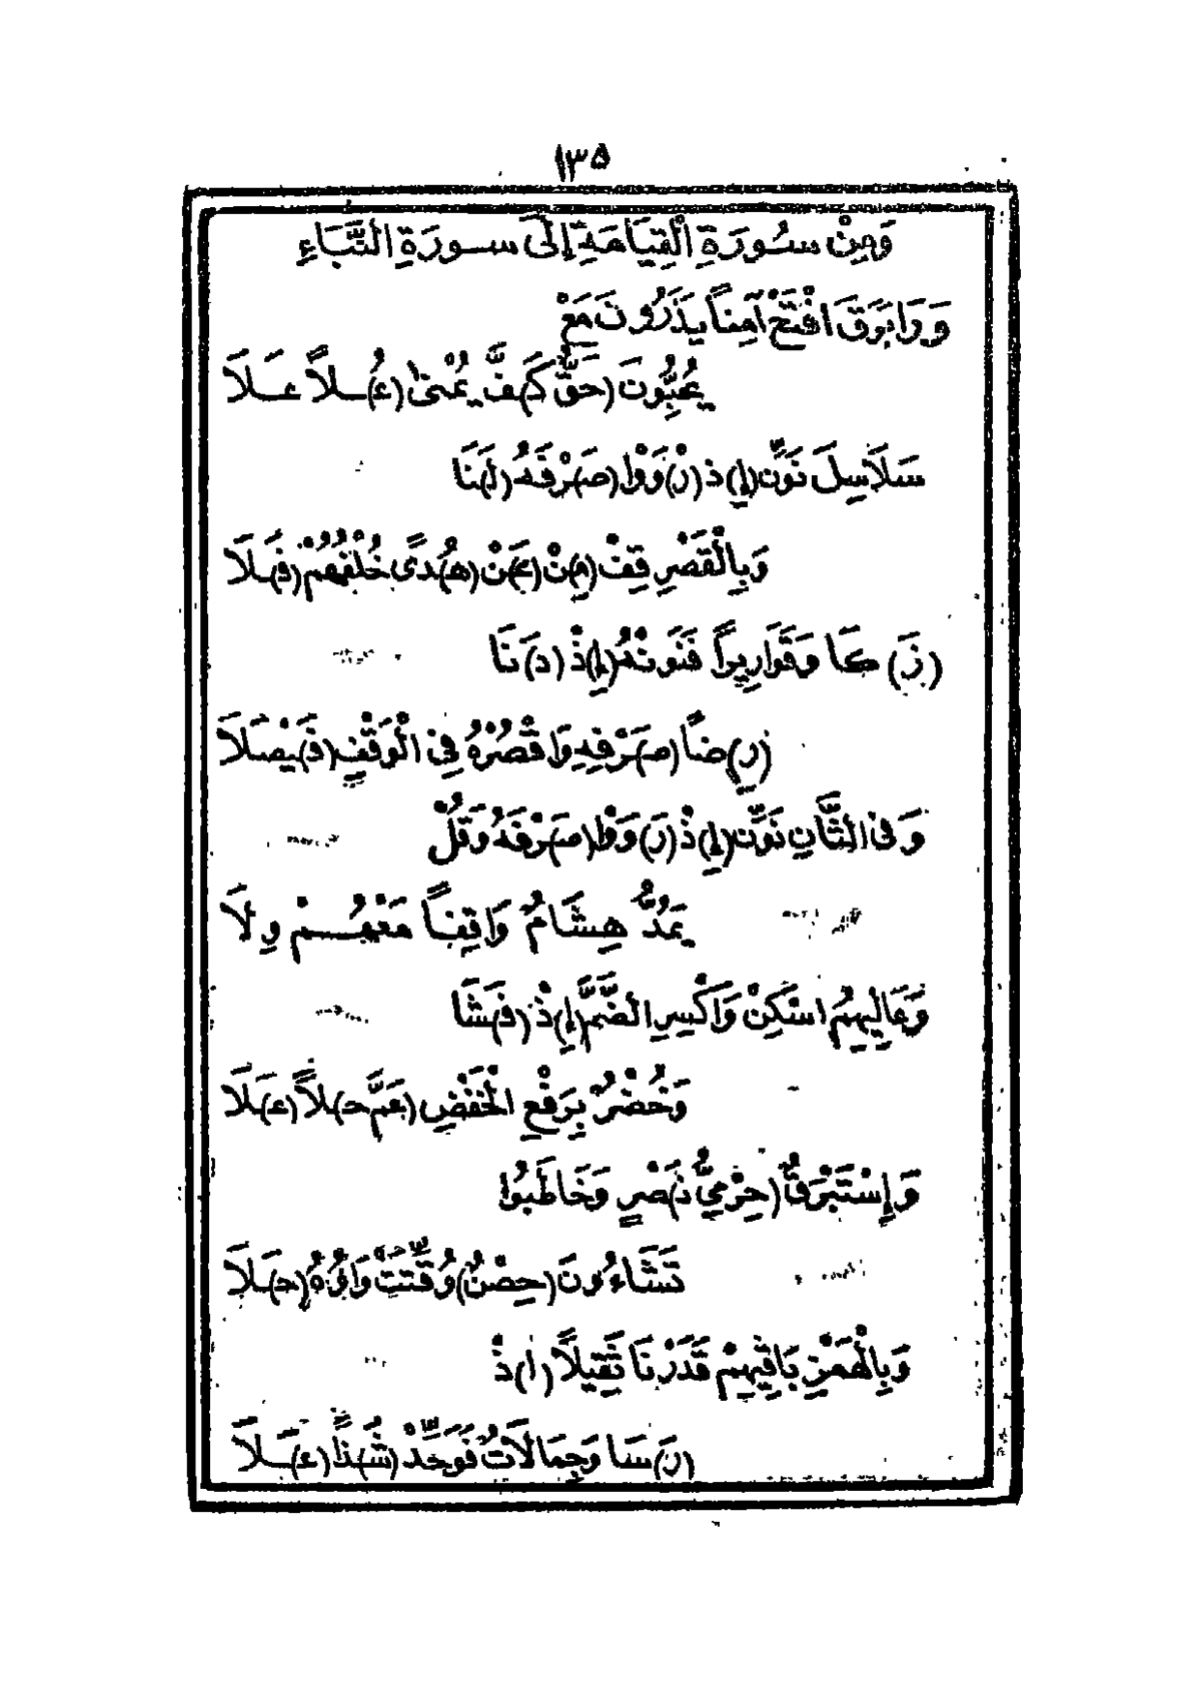 ١٣٥
وَمِنْ سُورَةِ الْقِيَامَةِ إِلَى سورَةِ النَّبَاءِ
وَرَا بَرَقَ افْتَحْ آمِناً يَذَرُونَ مَعْ
يُحِبُّونَ (حَقٌّ كَـ)ـفَّ يُمْنٰى (عُـ)ـلاً عَلَا
سَلَاسِلَ نَوِّنْ (إِ)ذ (رَ)وَوْا (صَـ)ـرْفَهُ (لَـ)ـنَا
وَبِالْقَصْرِ قِفْ (مِـ)ـنْ (عَـ)ـنْ (هُـ)ـدًى خُلْفُهُمْ (فَـ)ـلَا
(زَ) كَا وَقَوَارِيراً فَنَوِّنْهُ (إِ)ذْ (دَ) نَا
(رِ)ضًا (صَـ)ـرْفِهِ وَاقْصُرْهُ فِي الْوَقْفِ (فَـ)ـيْصَلَا
وَفِى الثَّانِ نَوِّنْ (إِ)ذْ (رَ)وَوْا (صَـ)ـرْفَهُ وَقُلْ
يَمُدُّ هِشَامٌ وَاقِفاً مَعْهُمُ وِلَا
وَعَالِيهِمُ اسْكِنْ وَاكْسِرِ الضَّمَّ (إِ)ذْ (فَـ)ـشَا
وَخُضْرٌ بِرَفْعِ الْخَفْضِ (عَمَّ حُـ)ـلاً (عَـ)ـلَا
وَإِسْتَبْرَقٌ (حِرْمِيُّ نَـ)ـصْرٍ وَخَاطَبُوا
تَشَاءُونَ (حِصْنٌ) وُقِّتَتْ وَاوُهُ (حَـ)ـلَا
وَبِالْهَمْزِ بَاقِيهِمْ قَدَرْنَا ثَقِيلاً (ا)ذْ
(رَ) سَا وَجِمَالَاتٌ فَوَحِّدْ (شَـ)ـذًا (عَـ)ـلَا